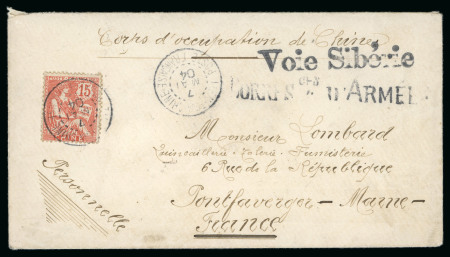 Corps d'occupation de Chine
Voie Sibérie
CORRESP. CES D'ARMÉES
15
7
04
Monsieur Lombard
Quincaillerie - Valerie - Fumisterie
6 Rue de la République
Pontfaverger - Marne -
France
Personnelle